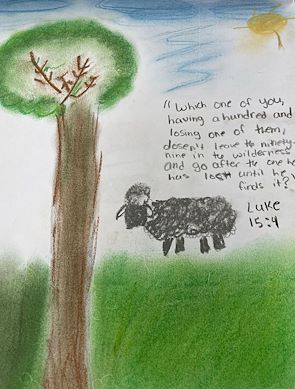 "Which one of you,
having a hundred and
losing one of them,
doesn't leave to ninety-
nine in to wilderness
and go after to one he
has lost until he
finds it?"
Luke
15:4